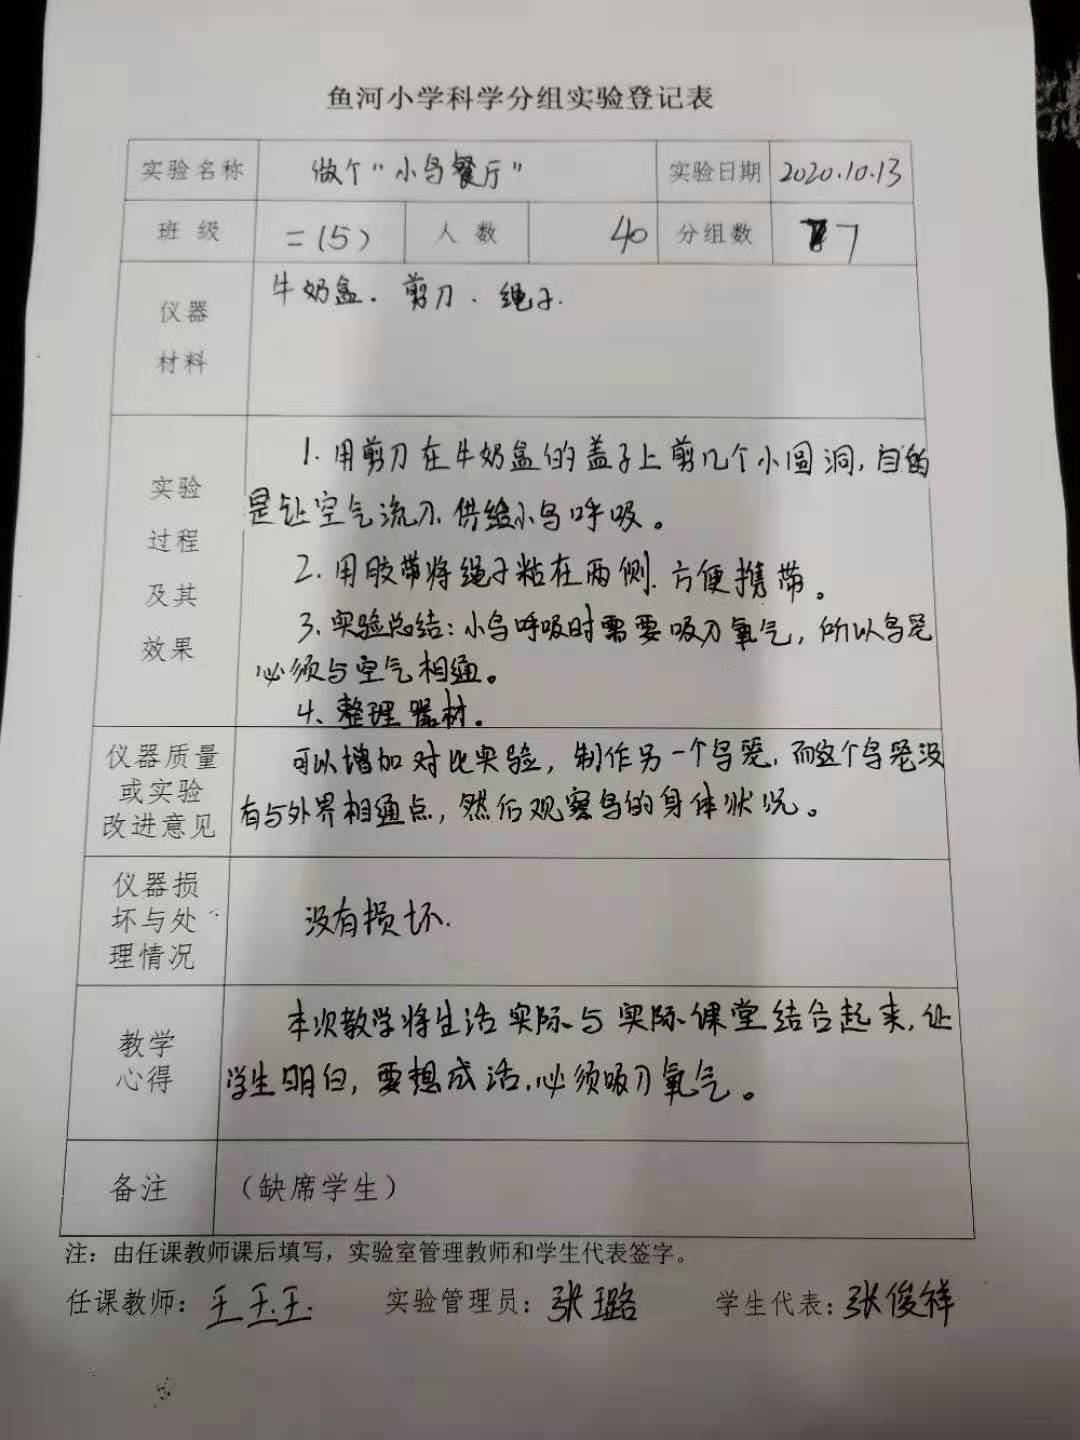 鱼河小学科学分组实验登记表
实验名称 做个“小鸟餐厅” 实验日期 2020.10.13
班 级 二(5) 人 数 40 分组数 7
仪器
材料
牛奶盒. 剪刀. 绳子.
实验
过程
及其
效果
1. 用剪刀在牛奶盒的盖子上剪几个小圆洞,目的
是让空气流动 供给小鸟呼吸。
2. 用胶带将绳子粘在两侧.方便携带。
3. 实验总结:小鸟呼吸时需要吸入氧气,所以鸟笼
必须与空气相通。
4、整理器材。
仪器质量
或实验
改进意见
可以增加对比实验,制作另一个鸟笼,而这个鸟笼没
有与外界相通点,然后观察鸟的身体状况。
仪器损
坏与处
理情况
没有损坏.
教学
心得
本次教学将生活实际与实际课堂结合起来,让
学生明白,要想成活,必须吸入氧气。
备注 (缺席学生)
注:由任课教师课后填写,实验室管理教师和学生代表签字。
任课教师: 实验管理员:张璐 学生代表:张俊祥